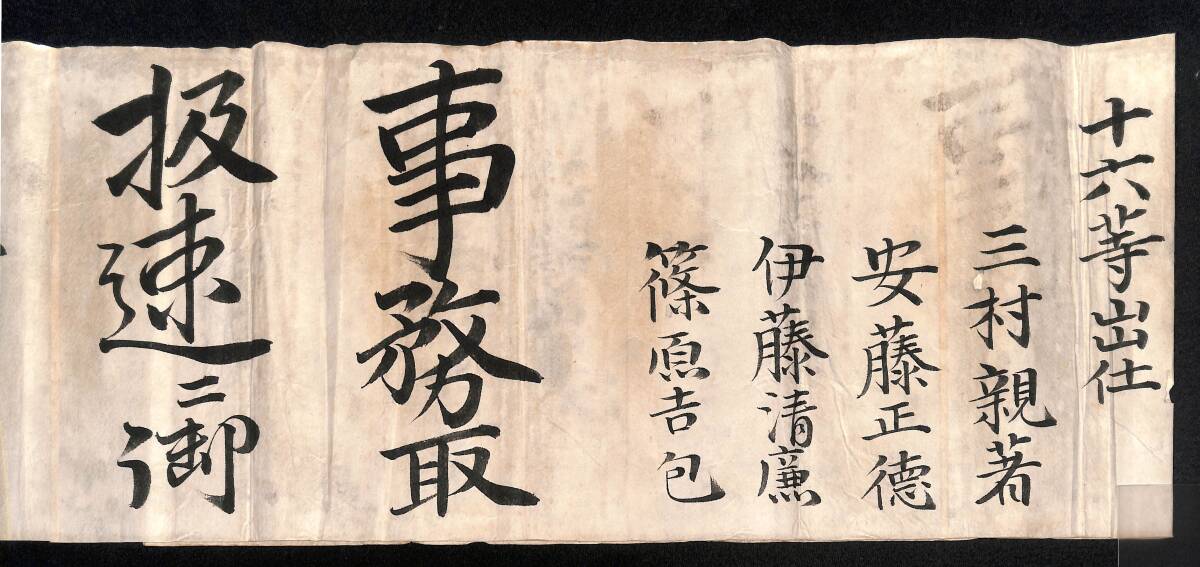 十六等出仕
三村親著
安藤正徳
伊藤清廉
篠原吉包
事務取
扱速ニ御